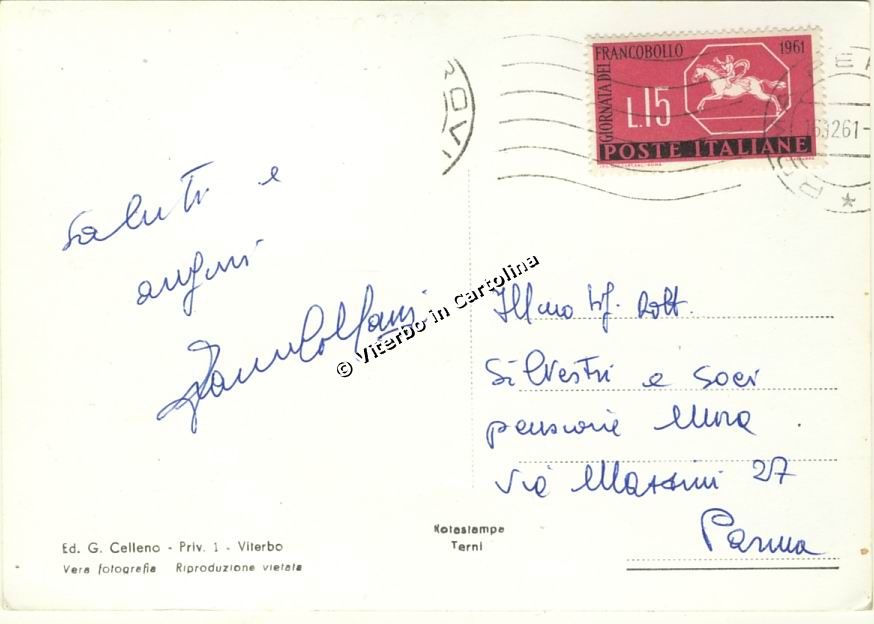 GIORNATA DEL
FRANCOBOLLO 1961
L.15
POSTE ITALIANE
ROVI
Saluti e
auguri
© Viterbo in Cartolina
Ill.mo Sig. Dott.
Silvestri e soci
pensione Mora
via Mazzini 27
Parma
Ed. G. Celleno - Priv. 1 - Viterbo
Vera fotografia Riproduzione vietata
Rotastampa
Terni